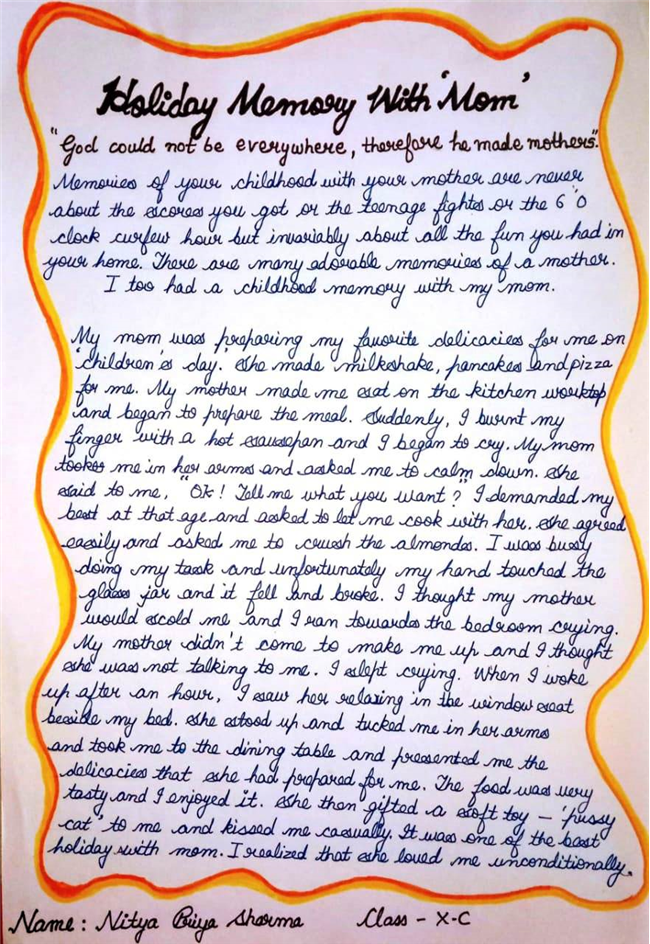 Holiday Memory With 'Mom'
"God could not be everywhere, therefore he made mothers".
Memories of your childhood with your mother are never
about the scores you got or the teenage fights or the 6 'O
clock curfew hour but invariably about all the fun you had in
your home. There are many adorable memories of a mother.
I too had a childhood memory with my mom.
My mom was preparing my favorite delicacies for me on
'children's day.' She made milkshake, pancakes and pizza
for me. My mother made me seat on the kitchen worktop
and began to prepare the meal. Suddenly, I burnt my
finger with a hot sausepan and I began to cry. My mom
tookes me in her arms and asked me to calm down. She
said to me, "Ok! Tell me what you want?" I demanded my
best at that age and asked to let me cook with her. She agreed
easily and asked me to crush the almonds. I was busy
doing my task and unfortunately my hand touched the
glass jar and it fell and broke. I thought my mother
would scold me and I ran towards the bedroom crying.
My mother didn't come to make me up and I thought
she was not talking to me. I slept crying. When I woke
up after an hour, I saw her relaxing in the window seat
beside my bed. She stood up and tucked me in her arms
and took me to the dining table and presented me the
delicacies that she had prepared for me. The food was very
tasty and I enjoyed it. She then gifted a soft toy – 'pussy
cat' to me and kissed me casually. It was one of the best
holiday with mom. I realized that she loved me unconditionally.
Name : Nitya Priya Sharma Class - X-C